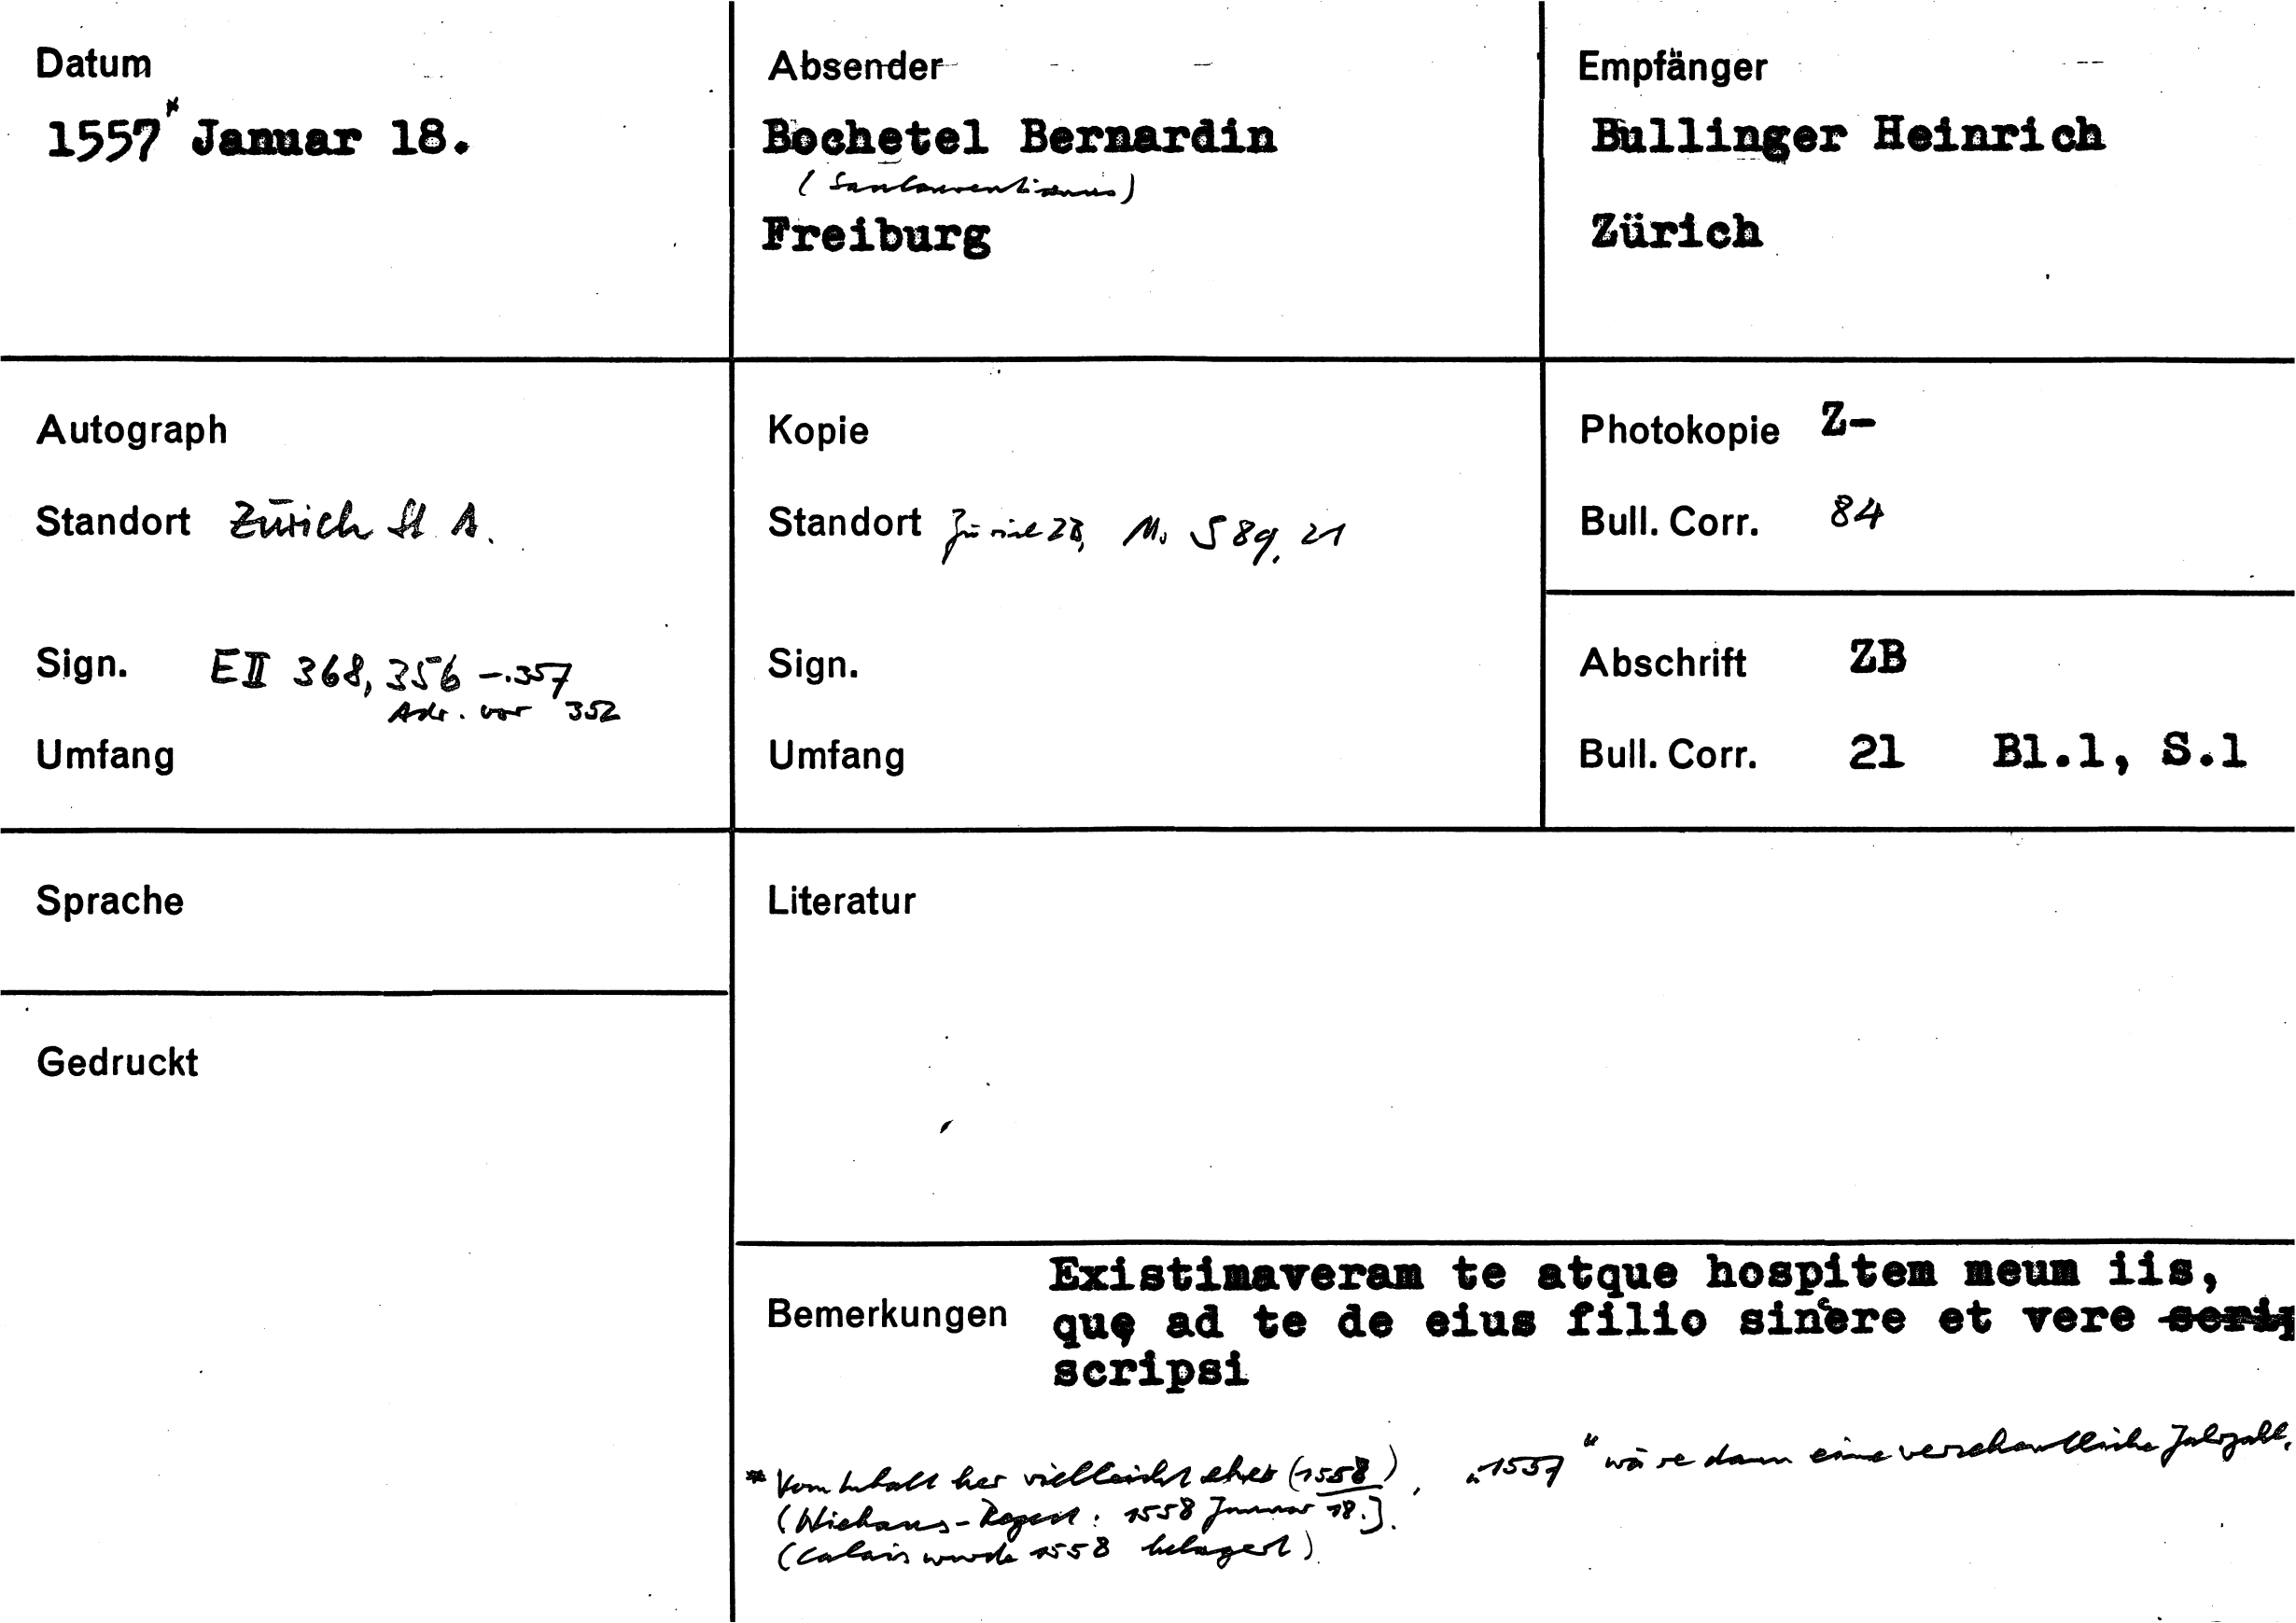 Datum
1557* Januar 18.
Absender
Bochetel Bernardin
(Sanlaurentianus)
Freiburg
Empfänger
Bullinger Heinrich
Zürich
Autograph
Standort Zürich St A.
Sign. E II 368, 356-.357
Adr. vor 352
Umfang
Kopie
Standort Zürich ZB, Ms S 89, 21
Sign.
Umfang
Photokopie Z-
Bull. Corr. 84
Abschrift ZB
Bull. Corr. 21 Bl.1, S.1
Sprache
Gedruckt
Literatur
Bemerkungen
Existimaveram te atque hospitem meum iis,
quę ad te de eius filio sincere et vere
scripsi
* Vom Inhalt her vielleicht eher (1558), „1557" wäre dann eine versehentliche Jahrzahl.
(Niehans-Regest: 1558 Januar 18.].
(Calais wurde 1558 belagert)